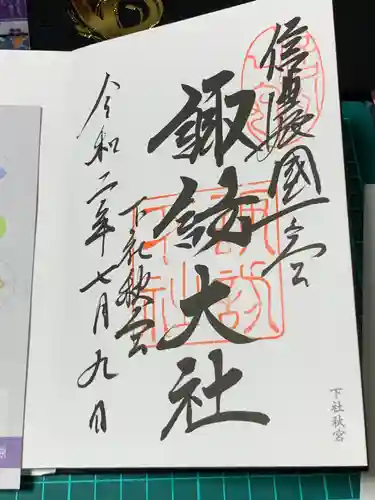 信濃國一宮
諏訪大社
下社秋宮
令和二年七月九日
下社秋宮